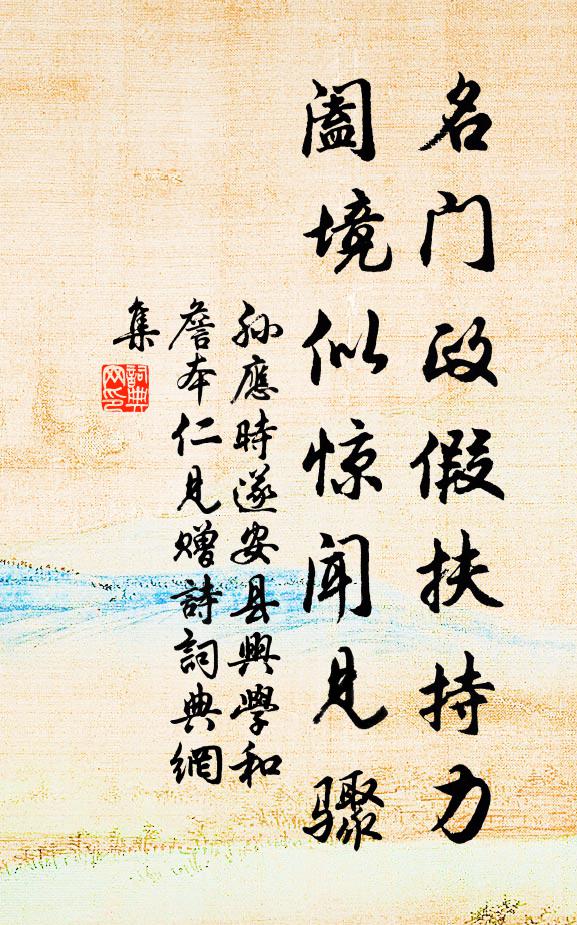 名门政假扶持力
阖境似惊闻见骤
孙應時遂安县興學和
詹本仁見赠詩詞典網
集
詞典
网印